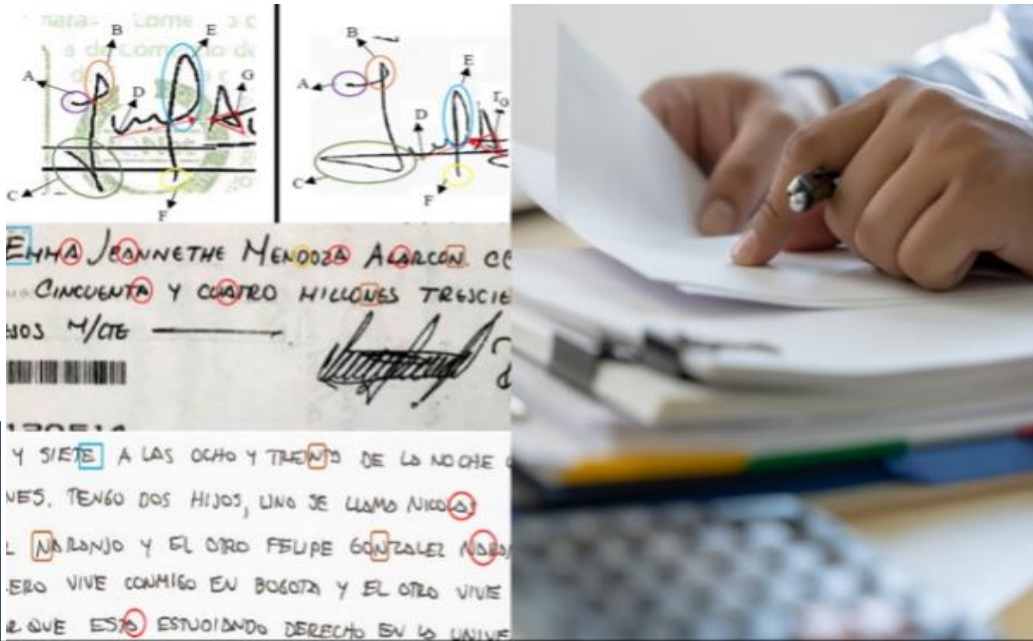 B
E
A
G
D
C
F
B
E
A
D
G
C
F
EMMA JEANNETHE MENDOZA ALARCON. CC
CINCUENTA Y CUATRO MILLONES TRESCIE
M/CTE
Y SIETE A LAS OCHO Y TREINTA DE LA NOCHE
TENGO DOS HIJOS, UNO SE LLAMA NICOLAS
NARANJO Y EL OTRO FELIPE GONZALEZ
VIVE CONMIGO EN BOGOTA Y EL OTRO VIVE
QUE ESTA ESTUDIANDO DERECHO EN LA UNIVE